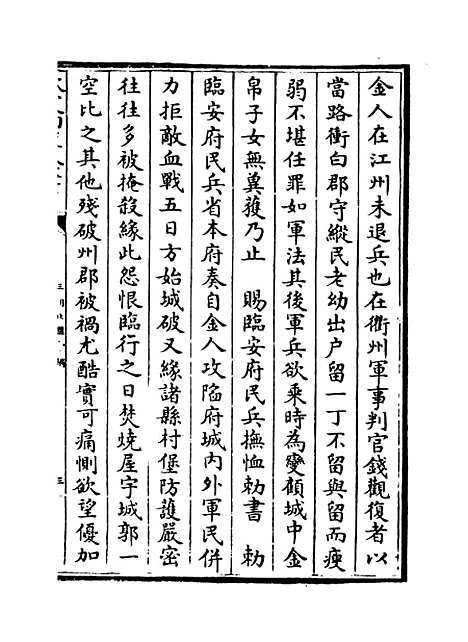 金人在江州未退兵也在衢州軍事判官錢觀復者以
當路衝白郡守縱民老幼出户留一丁不留與留而瘦
弱不堪任罪如軍法其後軍兵欲乗時為變顧城中金
帛子女無冀獲乃止　賜臨安府民兵撫恤勅書　勅
臨安府民兵省本府奏自金人攻陷府城内外軍民併
力拒敵血戰五日方始城破又緣諸縣村堡防護嚴密
往往多被掩殺緣此怨恨臨行之日焚燒屋宇城郭一
空比之其他殘破州郡被禍尤酷實可痛惻欲望優加
三